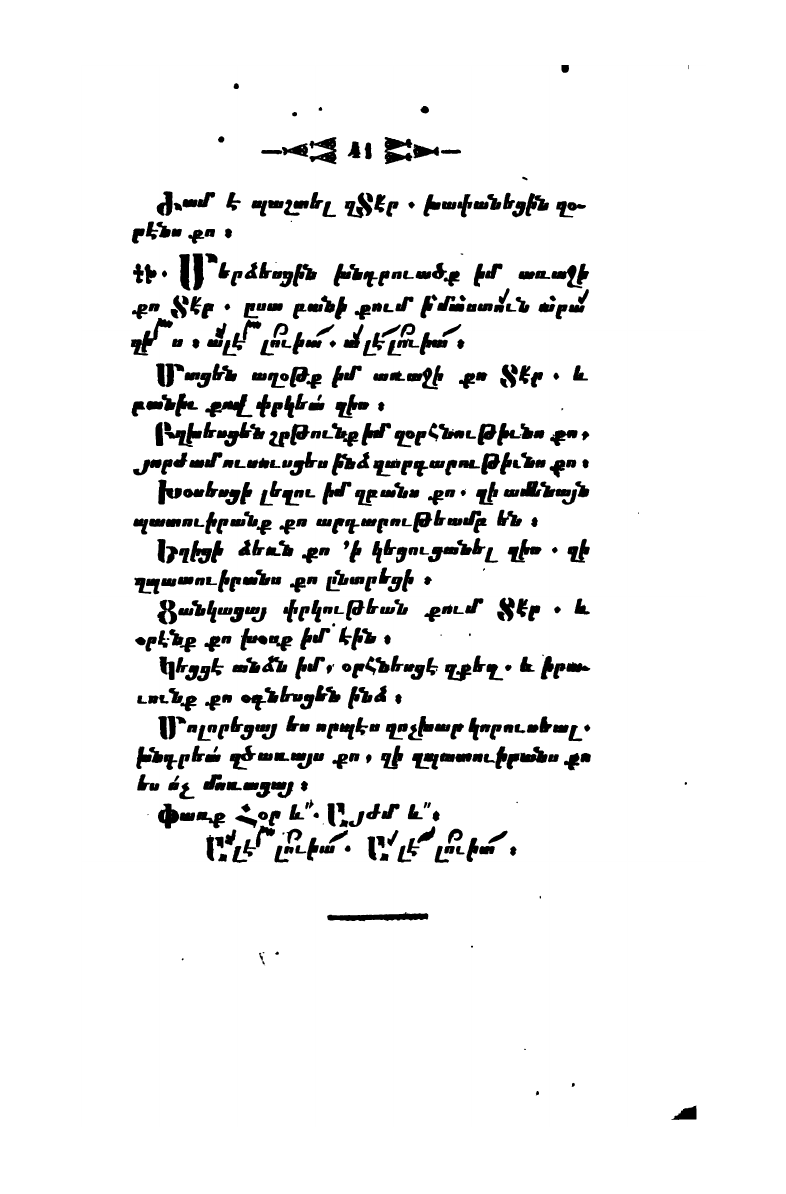 41
Ժամ է պաշտել զՏէր . խափանեցին զօ-
րէնս քո ։
դկ. Մերձեսցին խնդրուածք իմ առաջի
քո Տէր . ըստ բանի քում իմաստուն արա
զիս ։ ալէլուիա . ալէլուիա ։
Մտցեն աղօթք իմ առաջի քո Տէր . և
բանիւ քով փրկեա՛ զիս ։
Բղխեսցեն շրթունք իմ զօրհնութիւնս քո,
յորժամ ուսուսցես ինձ զարդարութիւնս քո ։
Խօսեսցի լեզու իմ զբանս քո . զի ամենայն
պատուիրանք քո արդարութեամբ են ։
Եղիցի ձեռն քո ՚ի կեցուցանել զիս . զի
զպատուիրանս քո ընտրեցի ։
Ցանկացայ փրկութեան քում Տէր . և
օրէնք քո խօսք իմ էին ։
Կեցցէ անձն իմ, օրհնեսցէ զքեզ . և իրա-
ւունք քո օգնեսցեն ինձ ։
Մոլորեցայ ես որպէս զոչխար կորուսեալ .
խնդրեա՛ զծառայս քո, զի զպատուիրանս քո
ես ո՛չ մոռացայ ։
Փառք Հօր և՟. Այժմ և՟։
Ալէլուիա . Ալէլուիա ։